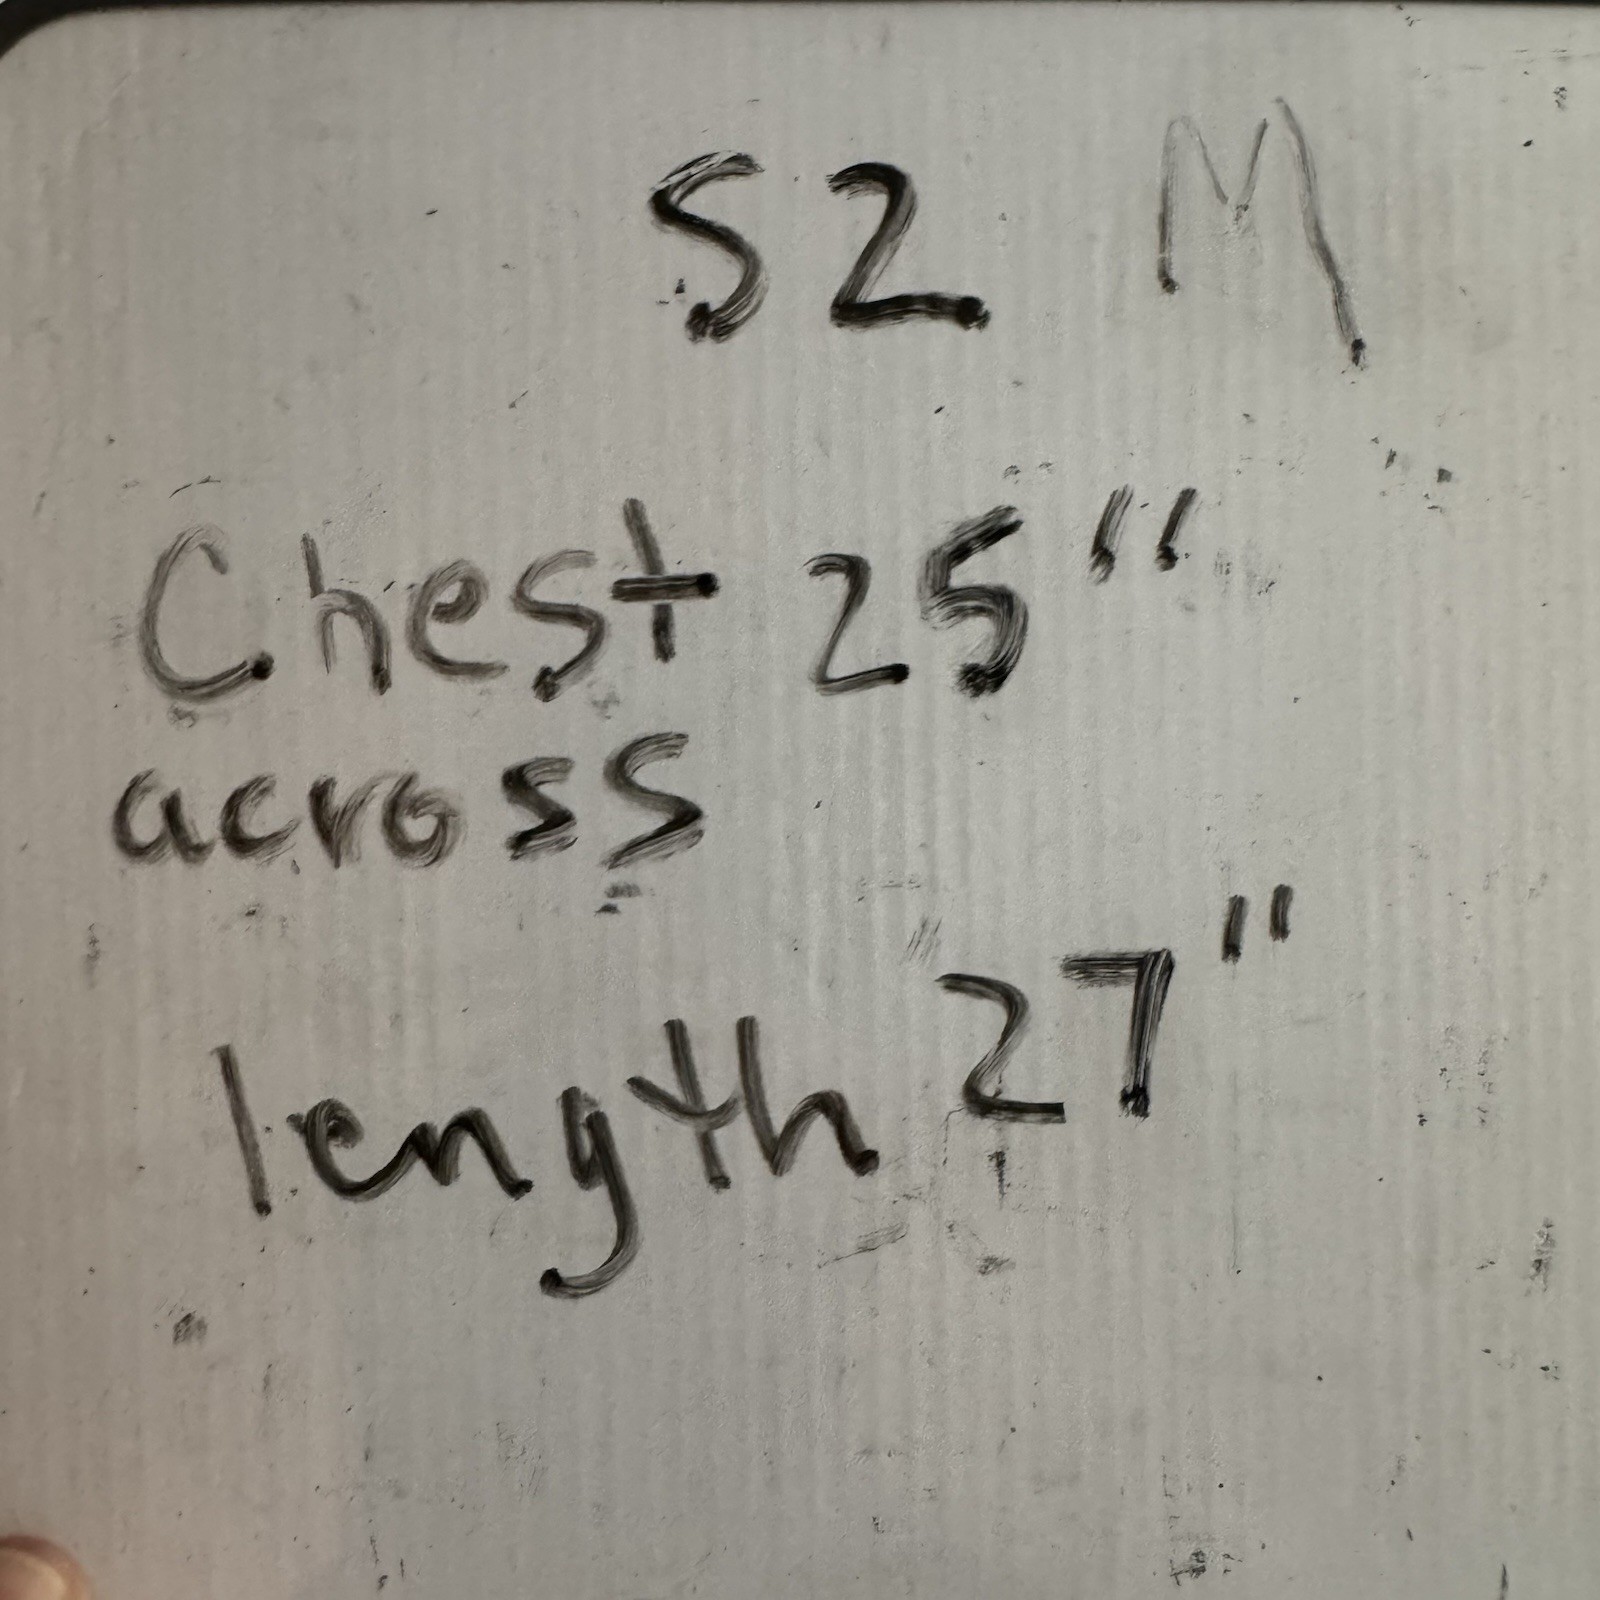 S2 M
Chest 25"
across
length 27"